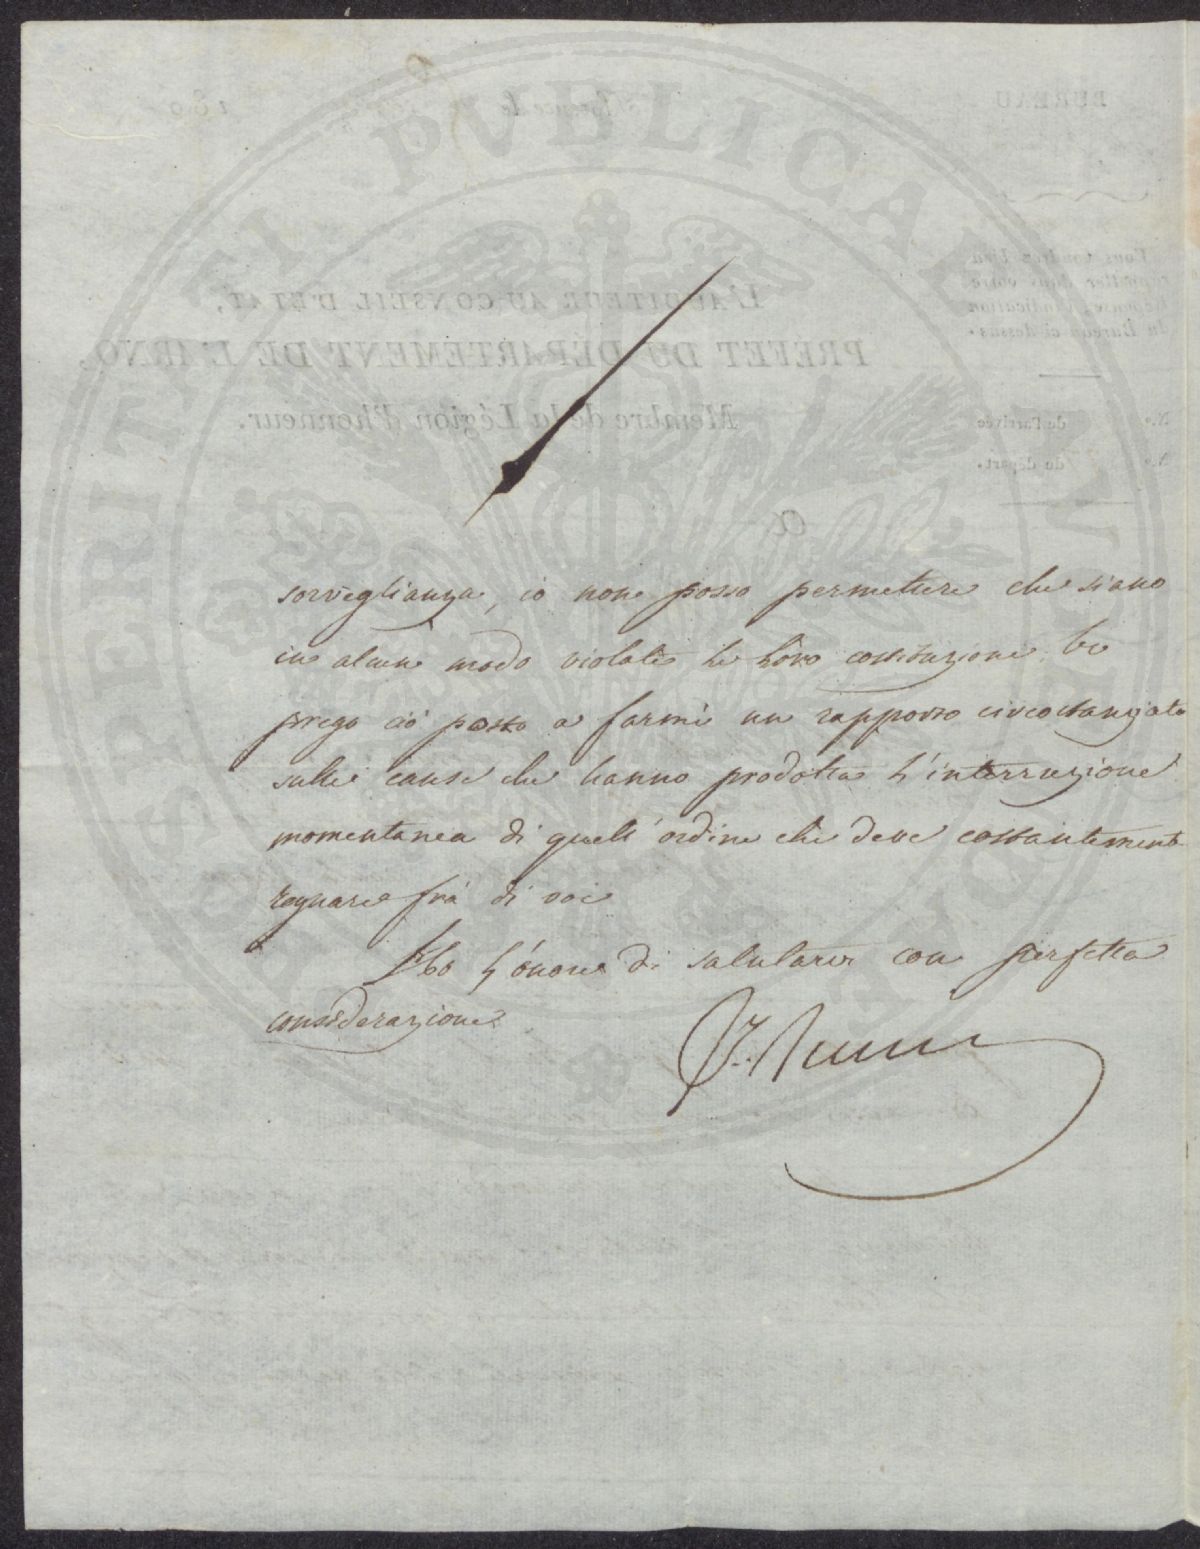 sorveglianza, io non posso permettere che siano
in alcun modo violate le loro costituzioni. Vi
prego ciò posto a farmi un rapporto circostanziato
sulle cause che hanno prodotta l'interruzione
momentanea di quell'ordine che deve costantemente
regnare frà di voi
Ho l'onore di salutarvi con perfetta
considerazione